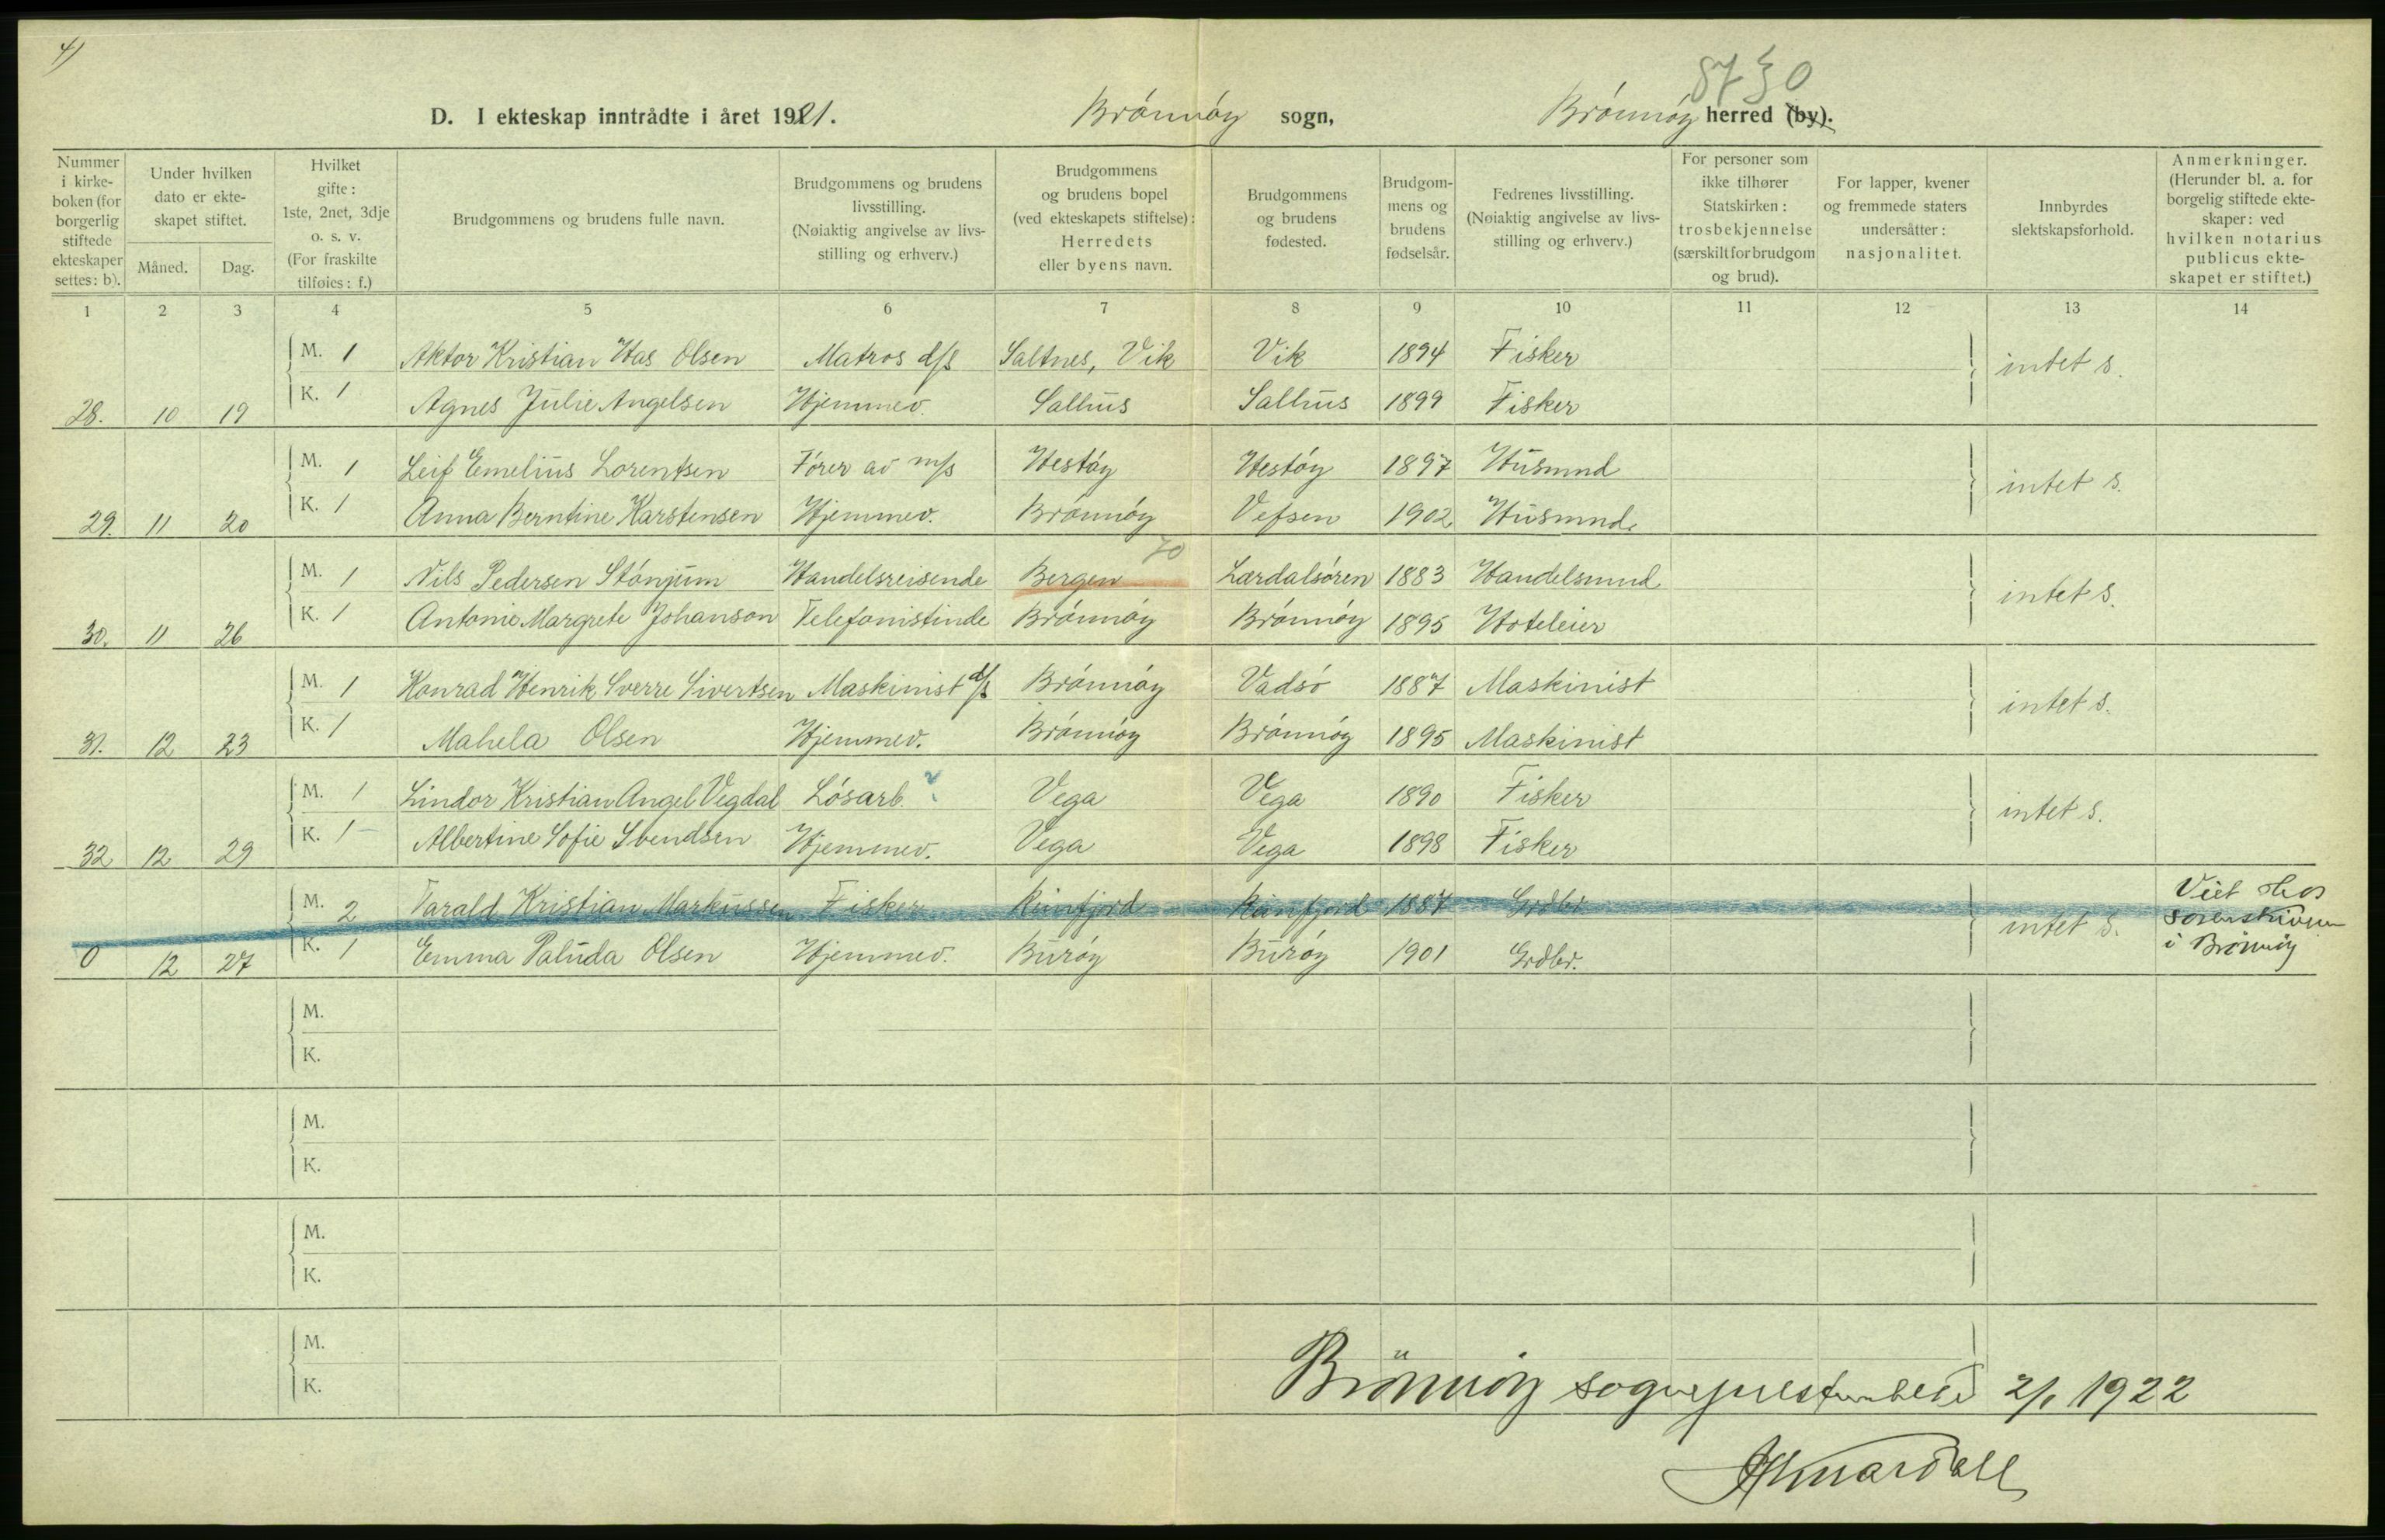 4)
8730
D. I ekteskap inntrådte i året 1921. Brónnóy sogn, Brónnóy herred (by).
Nummer i kirkeboken (for borgerlig stiftede ekteskaper settes: b). Under hvilken dato er ekteskapet stiftet. Måned. Dag. Hvilket gifte: 1ste, 2net, 3dje o. s. v. (For fraskilte tilføies: f.) Brudgommens og brudens fulle navn. Brudgommens og brudens livsstilling. (Nøiaktig angivelse av livsstilling og erhverv.) Brudgommens og brudens bopel (ved ekteskapets stiftelse): Herredets eller byens navn. Brudgommens og brudens fødested. Brudgommens og brudens fødselsår. Fedrenes livsstilling. (Nøiaktig angivelse av livsstilling og erhverv.) For personer som ikke tilhører Statskirken: trosbekjennelse (særskilt for brudgom og brud). For lapper, kvener og fremmede staters undersåtter: nasjonalitet. Innbyrdes slektskapsforhold. Anmerkninger. (Herunder bl. a. for borgelig stiftede ekteskaper: ved hvilken notarius publicus ekteskapet er stiftet.)
1 2 3 4 5 6 7 8 9 10 11 12 13 14
M. 1 Aktor Kristian Has Olsen Matros d/s Saltnes, Vik Vik 1894 Fisker intet s.
28. 10 19 K. 1 Agnes Julie Angelsen Hjemmev. Salhus Salhus 1899 Fisker
M. 1 Leif Emelius Lorentsen Fórer av m/s Hestóy Hestóy 1897 Husmnd intet s.
29. 11 20 K. 1 Anna Berntine Karstensen Hjemmev. Brónnóy Vefsen 1902 Husmnd.
70
M. 1 Nils Pedersen Stónjum Handelsreisende Bergen Lærdalsóren 1883 Handelsmnd intet s.
30. 11 26 K. 1 Antonie Margrete Johanson Telefonistinde Brónnóy Brónnóy 1895 Hoteleier
M. 1 Konrad Henrik Sverre Sivertsen Maskinist d/s Brónnóy Vadsó 1887 Maskinist intet s.
31. 12 23 K. 1 Mahela Olsen Hjemmev. Brónnóy Brónnóy 1895 Maskinist
M. 1 Lindor Kristian Angel Vegdal Lósarb. ? Vega Vega 1890 Fisker intet s.
32 12 29 K. 1 Albertine Sofie Svendsen Hjemmev. Vega Vega 1898 Fisker
M. 2 Tarald Kristian Markussen Fisker 1887 Grdbr. intet s. Viet hos sorenskriveren i Brönnöy
0 12 27 K. 1 Emma Paluda Olsen Hjemmev. Buróy Buróy 1901 Grdbr.
M.
K.
M.
K.
M.
K.
M.
K.
Brönnöy sogneprestembede 2/1 1922